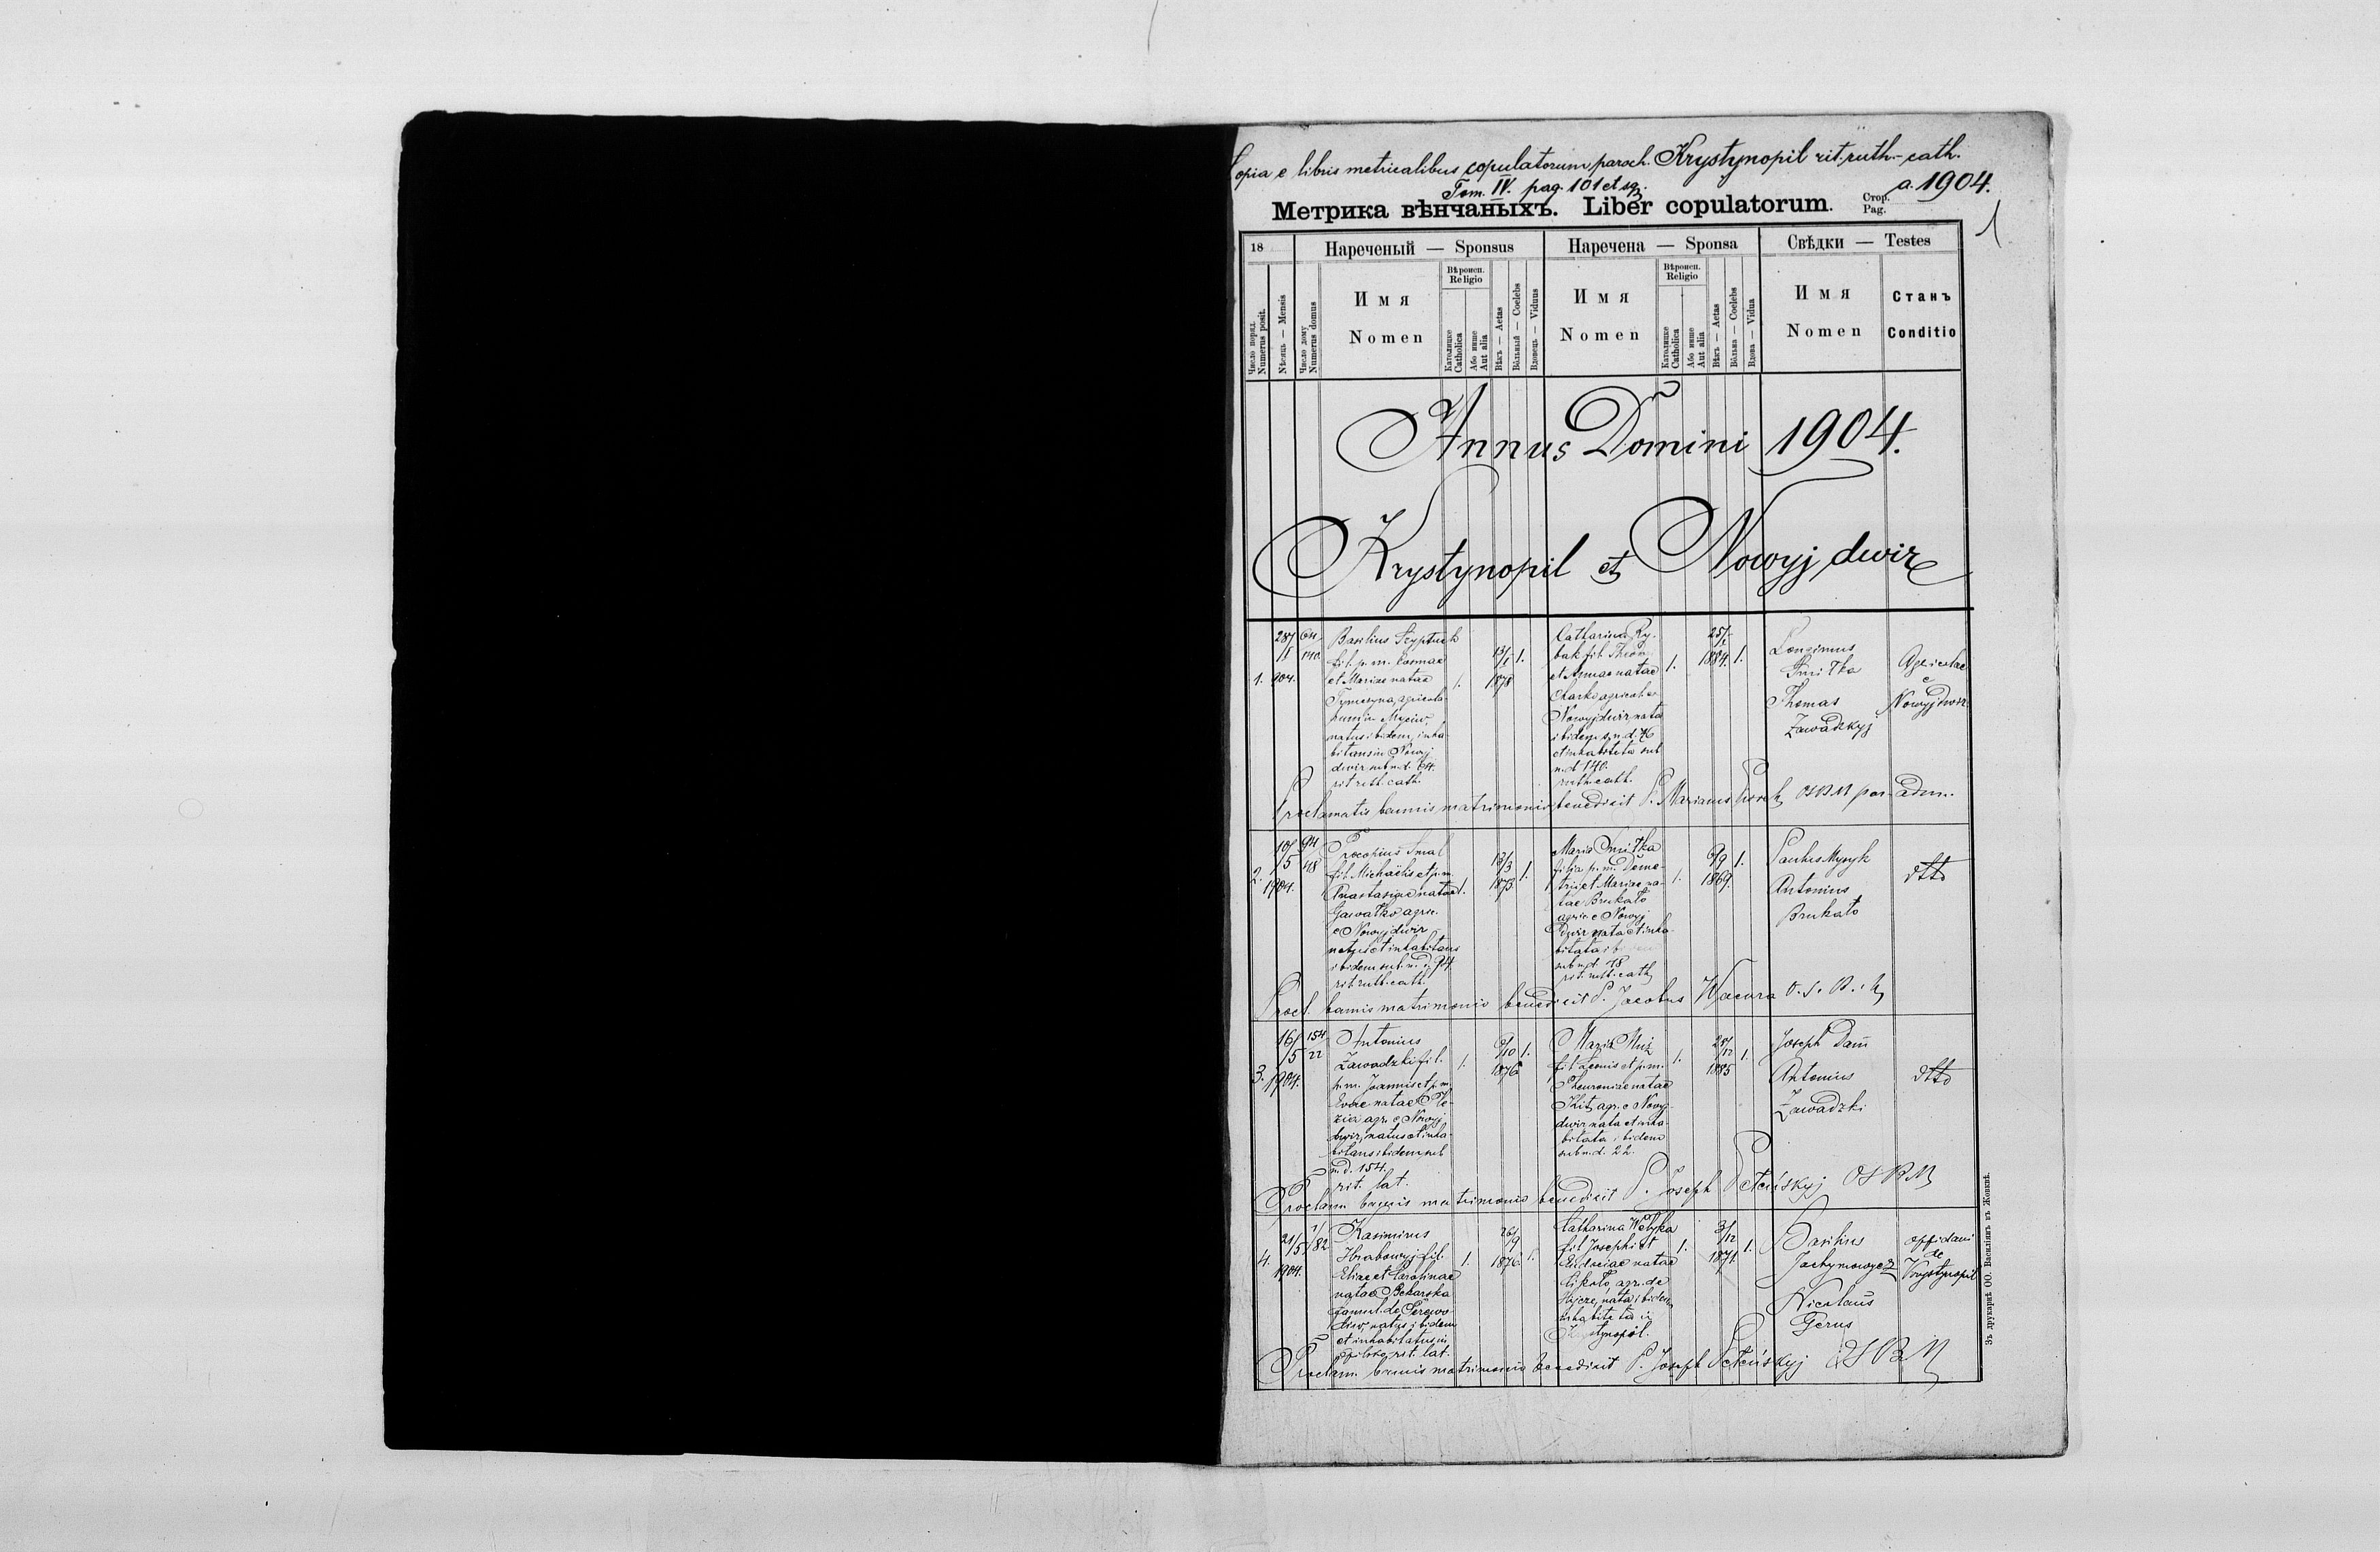 Copia e libris metricalibus copulatorum paroch. Krystynopil rit. ruth.-cath.
Tom. IV. pag. 101 et sq.
a. 1904.
Метрика вѣнчаныхъ. Liber copulatorum.
Стор.
Pag.
1
18
Нареченый — Sponsus
Наречена — Sponsa
Свѣдки — Testes
Число поряд.
Numerus posit.
Мѣсяць — Mensis
Число дому
Numerus domus
Имя
Nomen
Вѣроисп.
Religio
Католицке
Catholica
Або инше
Aut alia
Вѣкъ — Aetas
Вольный — Coelebs
Вдовець — Viduus
Имя
Nomen
Вѣроисп.
Religio
Католицке
Catholica
Або инше
Aut alia
Вѣкъ — Aetas
Вольна — Coelebs
Вдова — Vidua
Имя
Nomen
Станъ
Conditio
Annus Domini 1904.
Krystynopil et Nowyj dwir
1.
28/
I
904.
64
140
Basilius Szyptuch
fil. p. m. Cosmae
et Mariae natae
agricola
natus ibidem, inha-
bitans in Nowyj
dwir sub n. d. 64.
rit. ruth. cath.
1.
13/
I
1878
1.
Catharina Ry-
bak fil. Thom
et Annae natae
agricolae
Nowyjdwir, nata
ibidem s. n. d.
et inhabitata sub
n. d. 140.
ruth. cath.
1.
25/
1884.
1.
Longinus
Smitka
Thomas
Zawadzkyj
Agricolae
e
Nowyjdwir
Proclamatis bannis matrimonio benedixit P. Marianus OSBM par. adm.
2.
10/
5
1904.
94
48
Procopius Smal
fil. Michaëlis et p. m.
Anastasiae natae
Gawatko agric.
e Nowyj dwir
natus et inhabitans
ibidem sub. n. d. 94.
rit. ruth. cath.
1.
13/
3
1873.
1.
Maria Smitka
filia p. m. Deme-
trii et Mariae na-
tae Brukato
agric. e Nowyj
Dwir nata et inha-
bitata
sub n. d. 48
rit. ruth. cath.
1.
9/9
1869.
1.
Paulus Mysyk
Antonius
Brukato
dtto
Procl. bannis matrimonio benedixit P. Jacobus Wacura O. S. B. M
3.
16/
5
1904.
154
22
Antonius
Zawadzki fil.
p. m. Joannis et p. m.
Evae natae
agr. e Nowyj
dwir, natus et inha-
bitans ibidem sub
n. d. 154.
rit. lat.
1.
6/
10
1876
1.
Maria Muż
fil. Leonis et p. m.
natae
Kit, agr. e Nowyj
dwir nata et inha-
bitata ibidem
sub n. d. 22.
1.
28/
12
1885
1.
Joseph Dam
Antonius
Zawadzki
dtto
Proclam bannis matrimonio benedixit P. Joseph OSBM
4.
21/
5
1904.
1/82
Kasimirus
Hrabowyj fil.
Eliae et Carolinae
natae Bekarska
famul. de
natus ibidem
et inhabitatus in
rit. lat.
1.
26/
9
1876.
1.
Catharina Wełyka
fil Josephi et
Eudociae natae
agr. de
nata ibidem
inhabitata in
Krystynopil.
1.
3/
12
1871.
1.
Basilius
Jachymowycz
Nicolaus
Gerus
oppidani
de
Krystynopil
Proclam. bannis matrimonio benedixit P. Joseph OSBM
Зъ друкарнѣ ОО. Василіянъ въ Жовквѣ.